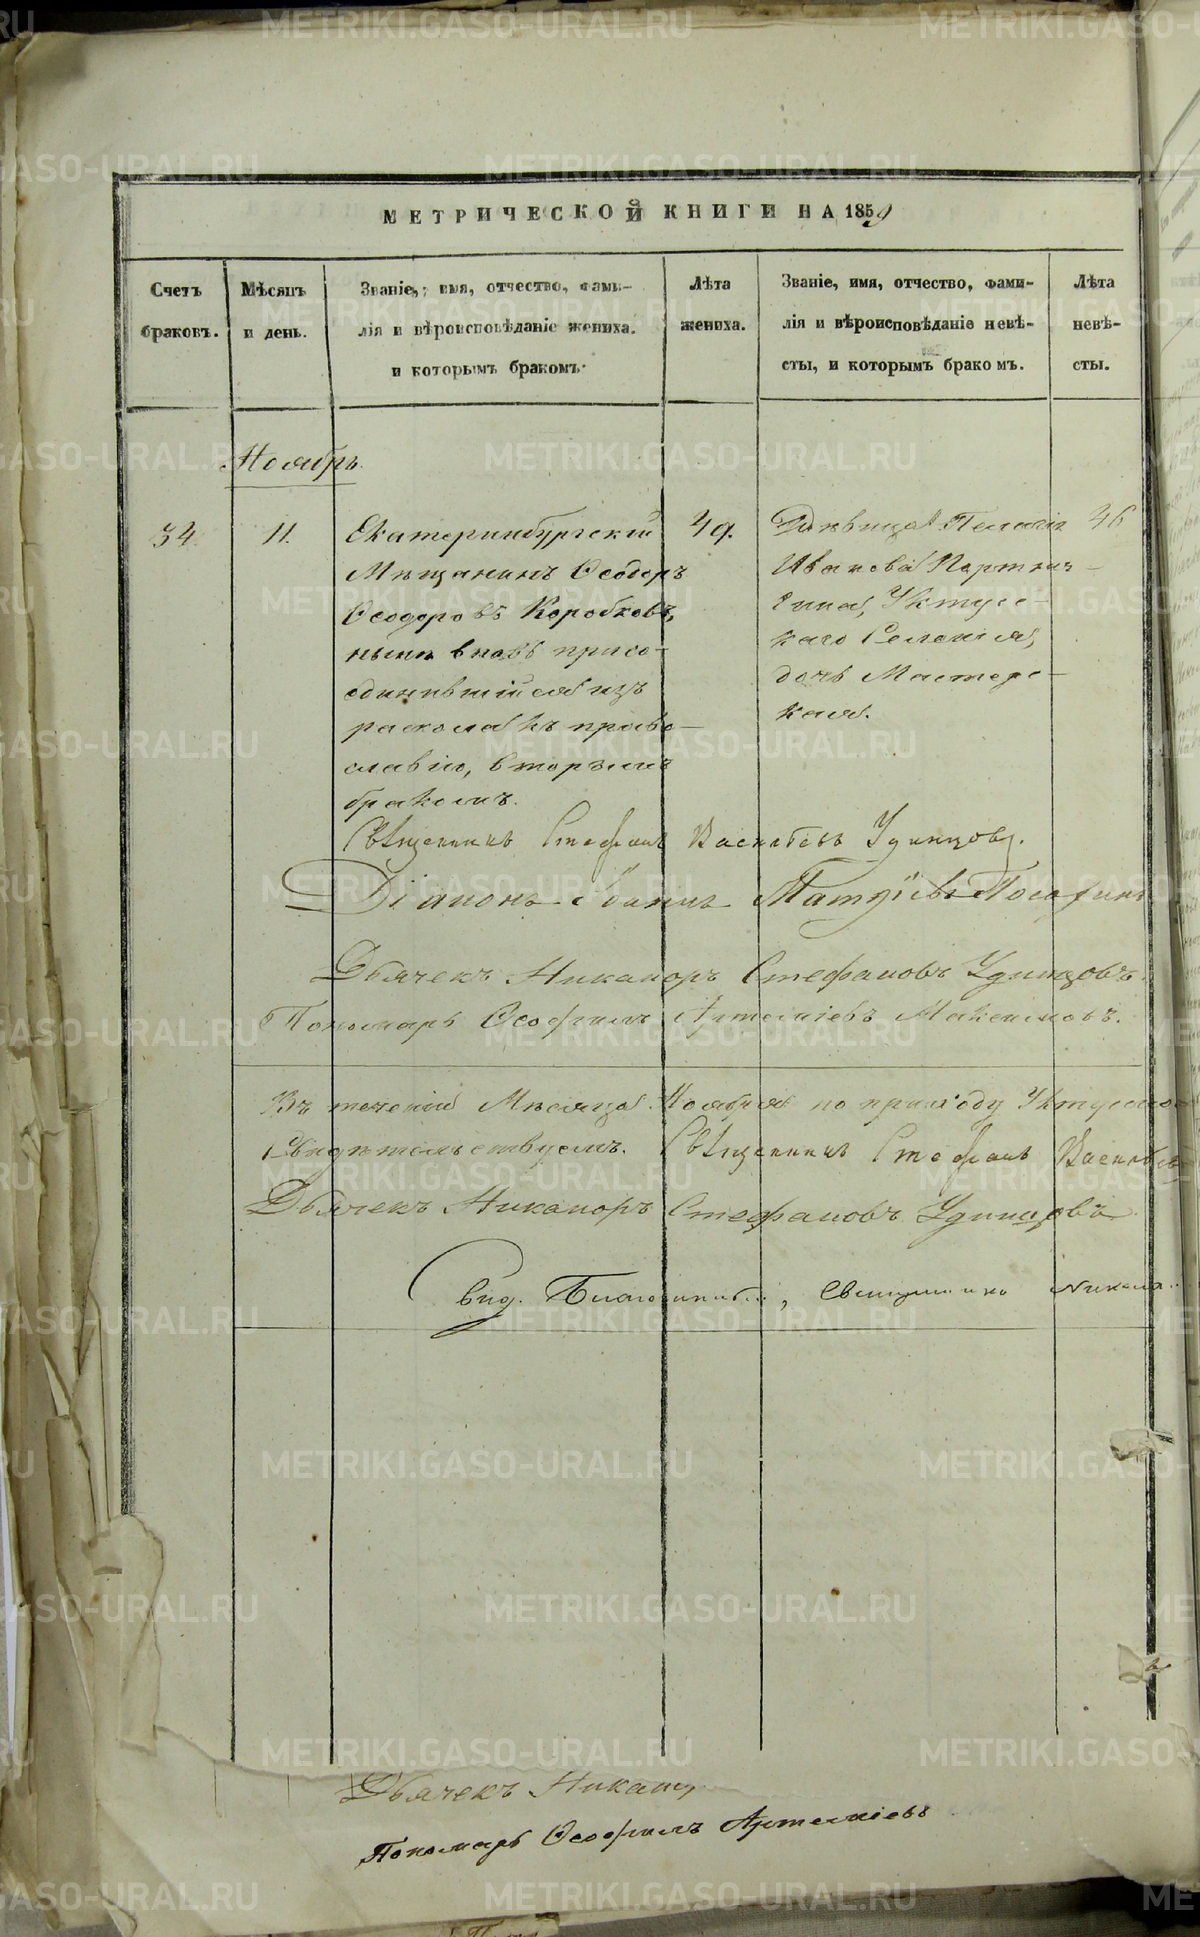 МЕТРИЧЕСКОЙ КНИГИ НА 1859
Счетъ браковъ.
Мѣсяцъ и день.
Званіе, имя, отчество, фами-
лія и вѣроисповѣданіе жениха.
и которымъ бракомъ.
Лѣта жениха.
Званіе, имя, отчество, фами-
лія и вѣроисповѣданіе невѣ-
сты, и которымъ бракомъ.
Лѣта невѣ-
сты.
Ноябрь
34.
11.
Екатеринбургскій
Мѣщанинъ Ѳеодоръ
Ѳеодоровъ Коробковъ,
нынѣ вновь присо-
единившійся изъ
раскола къ право-
славію, вторымъ
бракомъ.
49.
Дѣвица Пелагія
Иванова
Уктусс-
каго Селенія,
дочь Мастерс-
кая.
36
Священникъ Стефанъ Васильевъ Удинцовъ.
Діаконъ
Дьячекъ Никаноръ Стефановъ Удинцовъ.
Пономарь Ѳеофилъ Артеміевъ Максимовъ.
Въ теченіи Мѣсяца Ноября по приходу
Свидѣтельствуемъ. Священникъ Стефанъ
Дьячекъ Никаноръ Стефановъ Удинцовъ.
Благочинный, Священникъ
Дьячекъ
Пономарь Ѳеофилъ Артеміевъ
METRIKI.GASO-URAL.RU